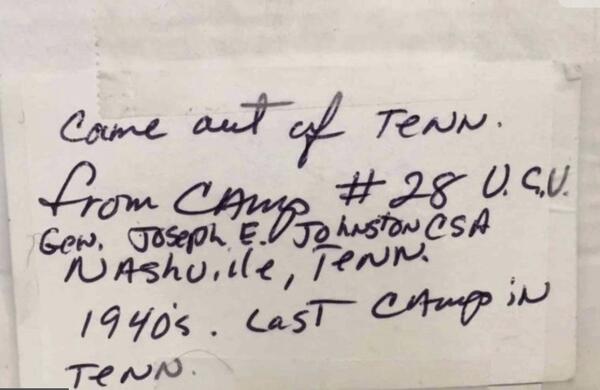 Came out of TENN.
from CAmp # 28 U.C.V.
Gen. Joseph E. Johnston CSA
NAshville, TENN.
1940's. Last CAmp in
TENN.